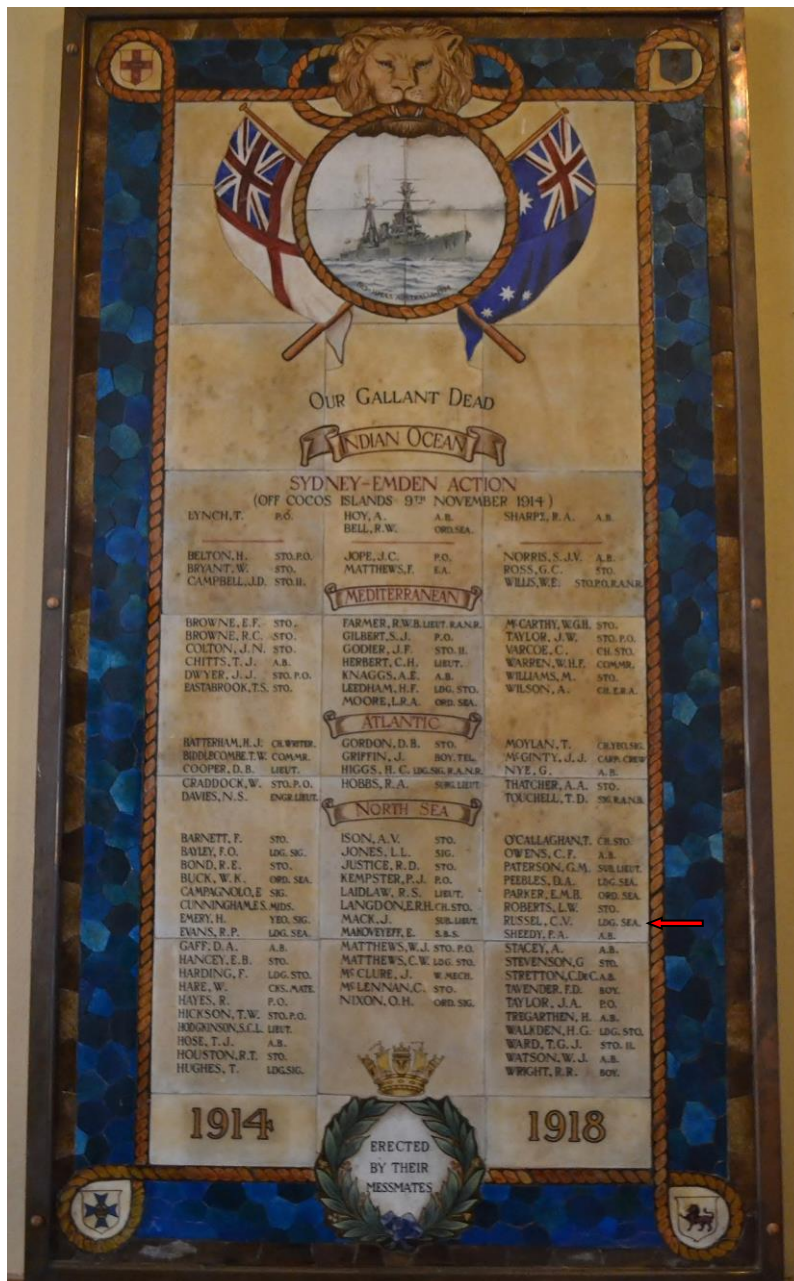 AUSTRALIA
OUR GALLANT DEAD
INDIAN OCEAN
SYDNEY-EMDEN ACTION
(OFF COCOS ISLANDS 9TH NOVEMBER 1914)
LYNCH, T. P.O.
HOY, A. A.B.
BELL, R.W. ORD.SEA.
SHARPE, R.A. A.B.
BELTON, H. STO.P.O.
BRYANT, W. STO.
CAMPBELL, J.D. STO.II.
JOPE, J.C. P.O.
MATTHEWS, F. E.A.
NORRIS, S.J.V. A.B.
ROSS, G.C. STO.
WILLIS, W.E. STO.P.O.R.A.N.R.
MEDITERRANEAN
BROWNE, E.F. STO.
BROWNE, R.C. STO.
COLTON, J.N. STO.
CHITTS, T.J. A.B.
DWYER, J.J. STO.P.O.
EASTABROOK, T.S. STO.
FARMER, R.W.B. LIEUT. R.A.N.R.
GILBERT, S.J. P.O.
GODIER, J.F. STO.II.
HERBERT, C.H. LIEUT.
KNAGGS, A.E. A.B.
LEEDHAM, H.F. LDG. STO.
MOORE, L.R.A. ORD. SEA.
McCARTHY, W.G.H. STO.
TAYLOR, J.W. STO.P.O.
VARCOE, C. CH.STO.
WARREN, W.H.F. COMMR.
WILLIAMS, M. STO.
WILSON, A. CH.E.R.A.
ATLANTIC
BATTERHAM, H.J. CH.WRITER.
BIDDLECOMBE, T.W. COMMR.
COOPER, D.B. LIEUT.
CRADDOCK, W. STO.P.O.
DAVIES, N.S. ENGR.LIEUT.
GORDON, D.B. STO.
GRIFFIN, J. BOY.TEL.
HIGGS, H.C. LDG.SIG.R.A.N.R.
HOBBS, R.A. SURG.LIEUT.
MOYLAN, T. CH.YEO.SIG.
McGINTY, J.J. CARP. CREW
NYE, G. A.B.
THATCHER, A.A. STO.
TOUCHELL, T.D. SIG.R.A.N.B.
NORTH SEA
BARNETT, F. STO.
BAYLEY, F.O. LDG. SIG.
BOND, R.E. STO.
BUCK, W.K. ORD. SEA.
CAMPAGNOLO, E SIG.
CUNNINGHAM, E.S. MIDS.
EMERY, H. YEO. SIG.
EVANS, R.P. LDG. SEA.
GAFF, D.A. A.B.
HANCEY, E.B. STO.
HARDING, F. LDG. STO.
HARE, W. CKS. MATE.
HAYES, R. P.O.
HICKSON, T.W. STO.P.O.
HODGKINSON, S.C.L. LIEUT.
HOSE, T.J. A.B.
HOUSTON, R.T. STO.
HUGHES, T. LDG.SIG.
ISON, A.V. STO.
JONES, L.L. SIG.
JUSTICE, R.D. STO.
KEMPSTER, P.J. P.O.
LAIDLAW, R.S. LIEUT.
LANGDON, E.R.H. CH.STO.
MACK, J. SUB.LIEUT.
MAKOVEYEFF, E. S.B.S.
MATTHEWS, W.J. STO.P.O.
MATTHEWS, C.W. LDG. STO.
McCLURE, J. W. MECH.
McLENNAN, C. STO.
NIXON, O.H. ORD. SIG.
O'CALLAGHAN, T. CH.STO.
OWENS, C.F. A.B.
PATERSON, G.M. SUB LIEUT.
PEEBLES, D.A. LDG. SEA.
PARKER, E.M.B. ORD. SEA.
ROBERTS, L.W. STO.
RUSSEL, C.V. LDG. SEA.
SHEEDY, P.A. A.B.
STACEY, A. A.B.
STEVENSON, G STO.
STRETTON, C.DeC. A.B.
TAVENDER, F.D. BOY.
TAYLOR, J.A. P.O.
TREGARTHEN, H. A.B.
WALKDEN, H.G. LDG. STO.
WARD, T.G.J. STO. II.
WATSON, W.J. A.B.
WRIGHT, R.R. BOY.
1914
1918
ERECTED
BY THEIR
MESSMATES